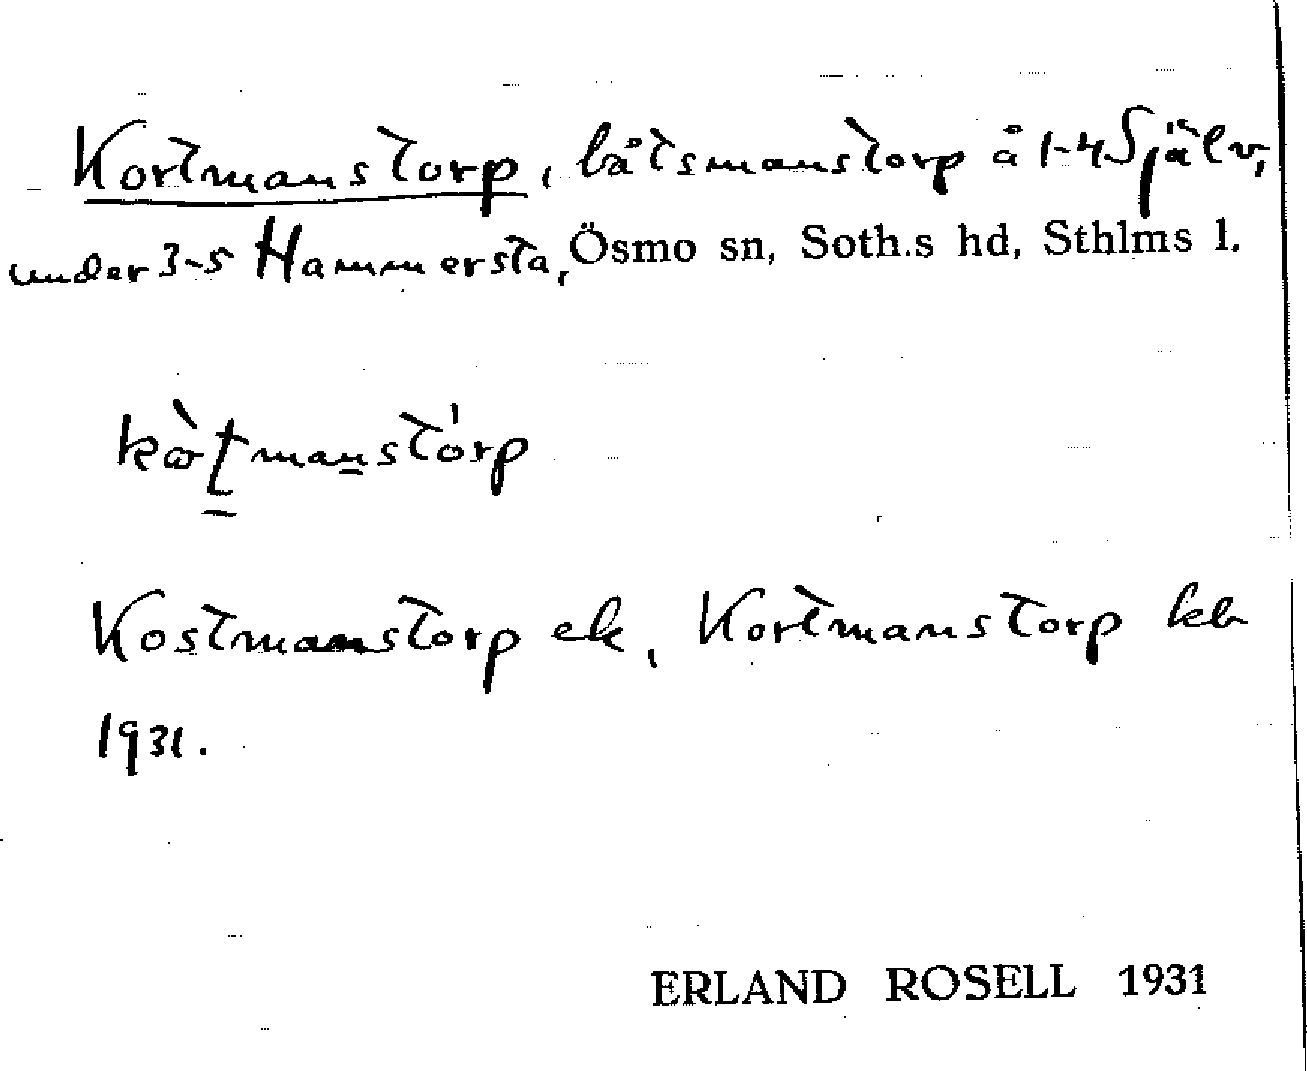 Kortmanstorp, båtsmanstorp å 1-4 Själv,
under 3-5 Hammersta, Ösmo sn, Soth.s hd, Sthlms l.
Kostmanstorp ek, Kortmanstorp kb
1931.
ERLAND ROSELL 1931